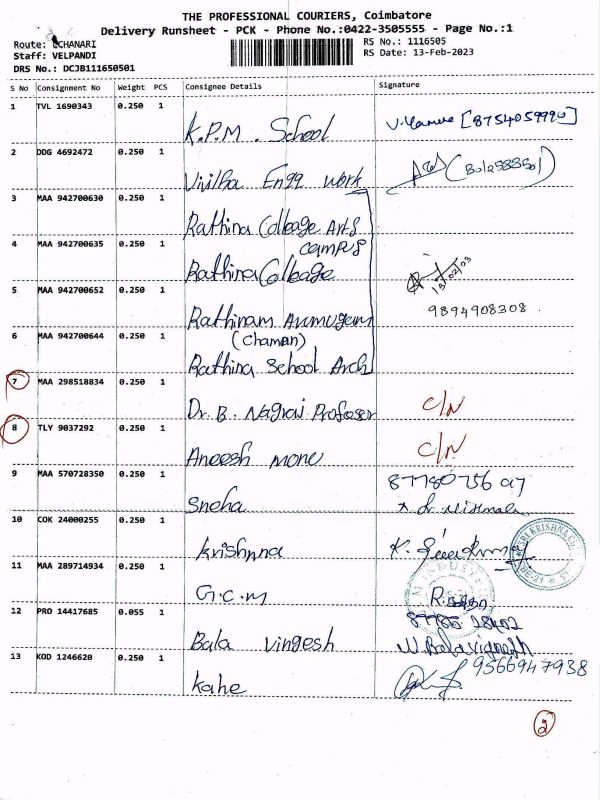 THE PROFESSIONAL COURIERS, Coimbatore
Delivery Runsheet - PCK - Phone No.:0422-3505555 - Page No.:1
Route: ECHANARI
Staff: VELPANDI
DRS No.: DCJB111650501
RS No.: 1116505
RS Date: 13-Feb-2023
S No Consignment No Weight PCS Consignee Details Signature
1 TVL 1690343 0.250 1
K.P.M. School [8754059990]
2 DDG 4692472 0.250 1
Engg work
3 MAA 942700630 0.250 1
Rathina Collage Arts
campus
4 MAA 942700635 0.250 1
Rathina Collage
13/02/23
5 MAA 942700652 0.250 1
9894908308
Rathinam Arumugam
(Chaman)
6 MAA 942700644 0.250 1
Rathina School Arch
7 MAA 298518834 0.250 1
Dr. B. Nagraj Profosar C/N
8 TLY 9037292 0.250 1
Aneesh mone C/N
9 MAA 570728350 0.250 1
Sneha
10 COK 24000255 0.250 1
Krishnna
11 MAA 289714934 0.250 1
G.C.M
12 PRO 14417685 0.055 1
Bala Vingesh
13 KOD 1246620 0.250 1
9566947938
Kahe
2